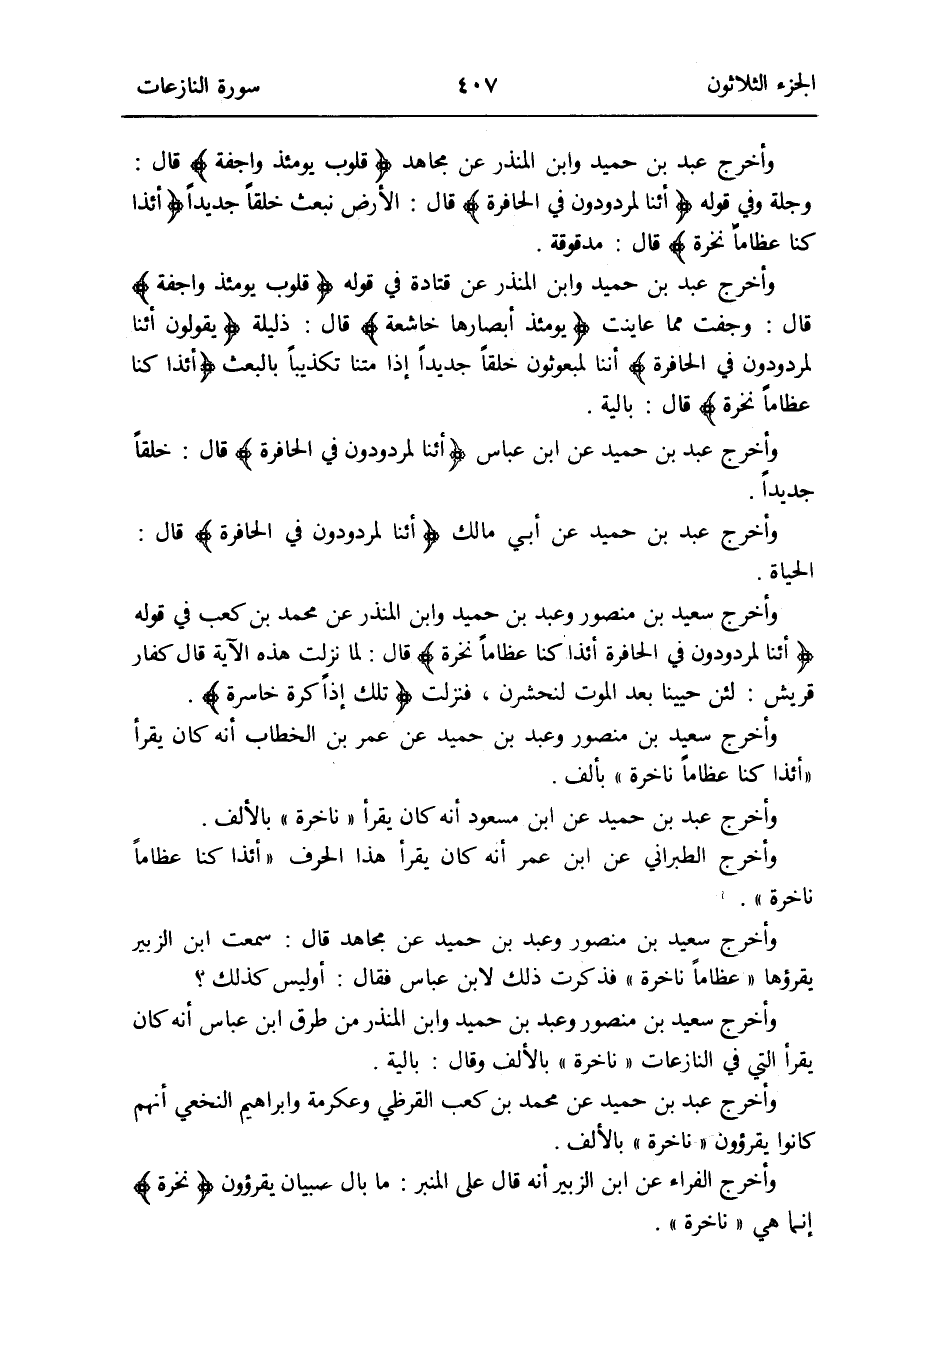 الجزء الثلاثون ٤٠٧ سورة النازعات
وأخرج عبد بن حميد وابن المنذر عن مجاهد ﴿ قلوب يومئذ واجفة ﴾ قال :
وجلة وفي قوله ﴿ أئنا لمردودون في الحافرة ﴾ قال : الأرض نبعث خلقاً جديداً ﴿ أئذا
كنا عظاماً نخرة ﴾ قال : مدقوقة .
وأخرج عبد بن حميد وابن المنذر عن قتادة في قوله ﴿ قلوب يومئذ واجفة ﴾
قال : وجفت مما عاينت ﴿ يومئذ أبصارها خاشعة ﴾ قال : ذليلة ﴿ يقولون أئنا
لمردودون في الحافرة ﴾ أننا لمبعوثون خلقاً جديداً إذا متنا تكذيباً بالبعث ﴿ أئذا كنا
عظاماً نخرة ﴾ قال : بالية .
وأخرج عبد بن حميد عن ابن عباس ﴿ أئنا لمردودون في الحافرة ﴾ قال : خلقاً
جديداً .
وأخرج عبد بن حميد عن أبـي مالك ﴿ أئنا لمردودون في الحافرة ﴾ قال :
الحياة .
وأخرج سعيد بن منصور وعبد بن حميد وابن المنذر عن محمد بن كعب في قوله
﴿ أئنا لمردودون في الحافرة أئذا كنا عظاماً نخرة ﴾ قال : لما نزلت هذه الآية قال كفار
قريش : لئن حيينا بعد الموت لنحشرن ، فنزلت ﴿ تلك إذاً كرة خاسرة ﴾ .
وأخرج سعيد بن منصور وعبد بن حميد عن عمر بن الخطاب أنه كان يقرأ
« أئذا كنا عظاماً ناخرة » بألف .
وأخرج عبد بن حميد عن ابن مسعود أنه كان يقرأ « ناخرة » بالألف .
وأخرج الطبراني عن ابن عمر أنه كان يقرأ هذا الحرف « أئذا كنا عظاماً
ناخرة » .
وأخرج سعيد بن منصور وعبد بن حميد عن مجاهد قال : سمعت ابن الزبير
يقرؤها « عظاماً ناخرة » فذكرت ذلك لابن عباس فقال : أوليس كذلك ؟
وأخرج سعيد بن منصور وعبد بن حميد وابن المنذر من طرق ابن عباس أنه كان
يقرأ التي في النازعات « ناخرة » بالألف وقال : بالية .
وأخرج عبد بن حميد عن محمد بن كعب القرظي وعكرمة وابراهيم النخعي أنهم
كانوا يقرؤون « ناخرة » بالألف .
وأخرج الفراء عن ابن الزبير أنه قال على المنبر : ما بال صبيان يقرؤون ﴿ نخرة ﴾
إنما هي « ناخرة » .